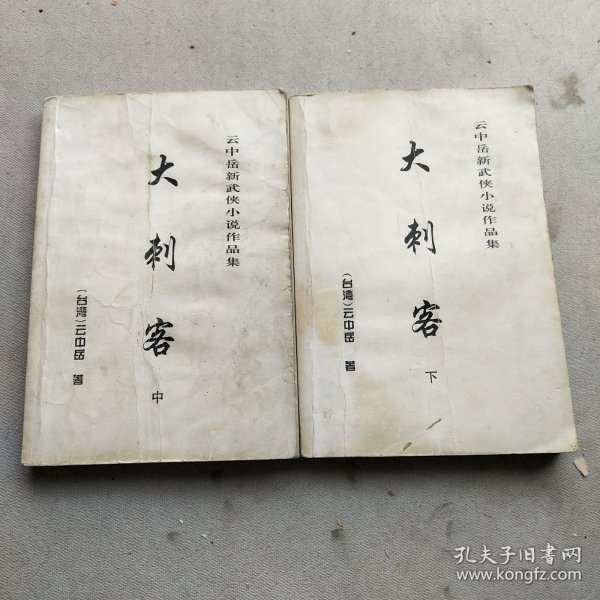 云中岳新武侠小说作品集
大刺客
中
(台湾)云中岳 著
云中岳新武侠小说作品集
大刺客
下
(台湾)云中岳 著
孔夫子旧书网
www.kongfz.com